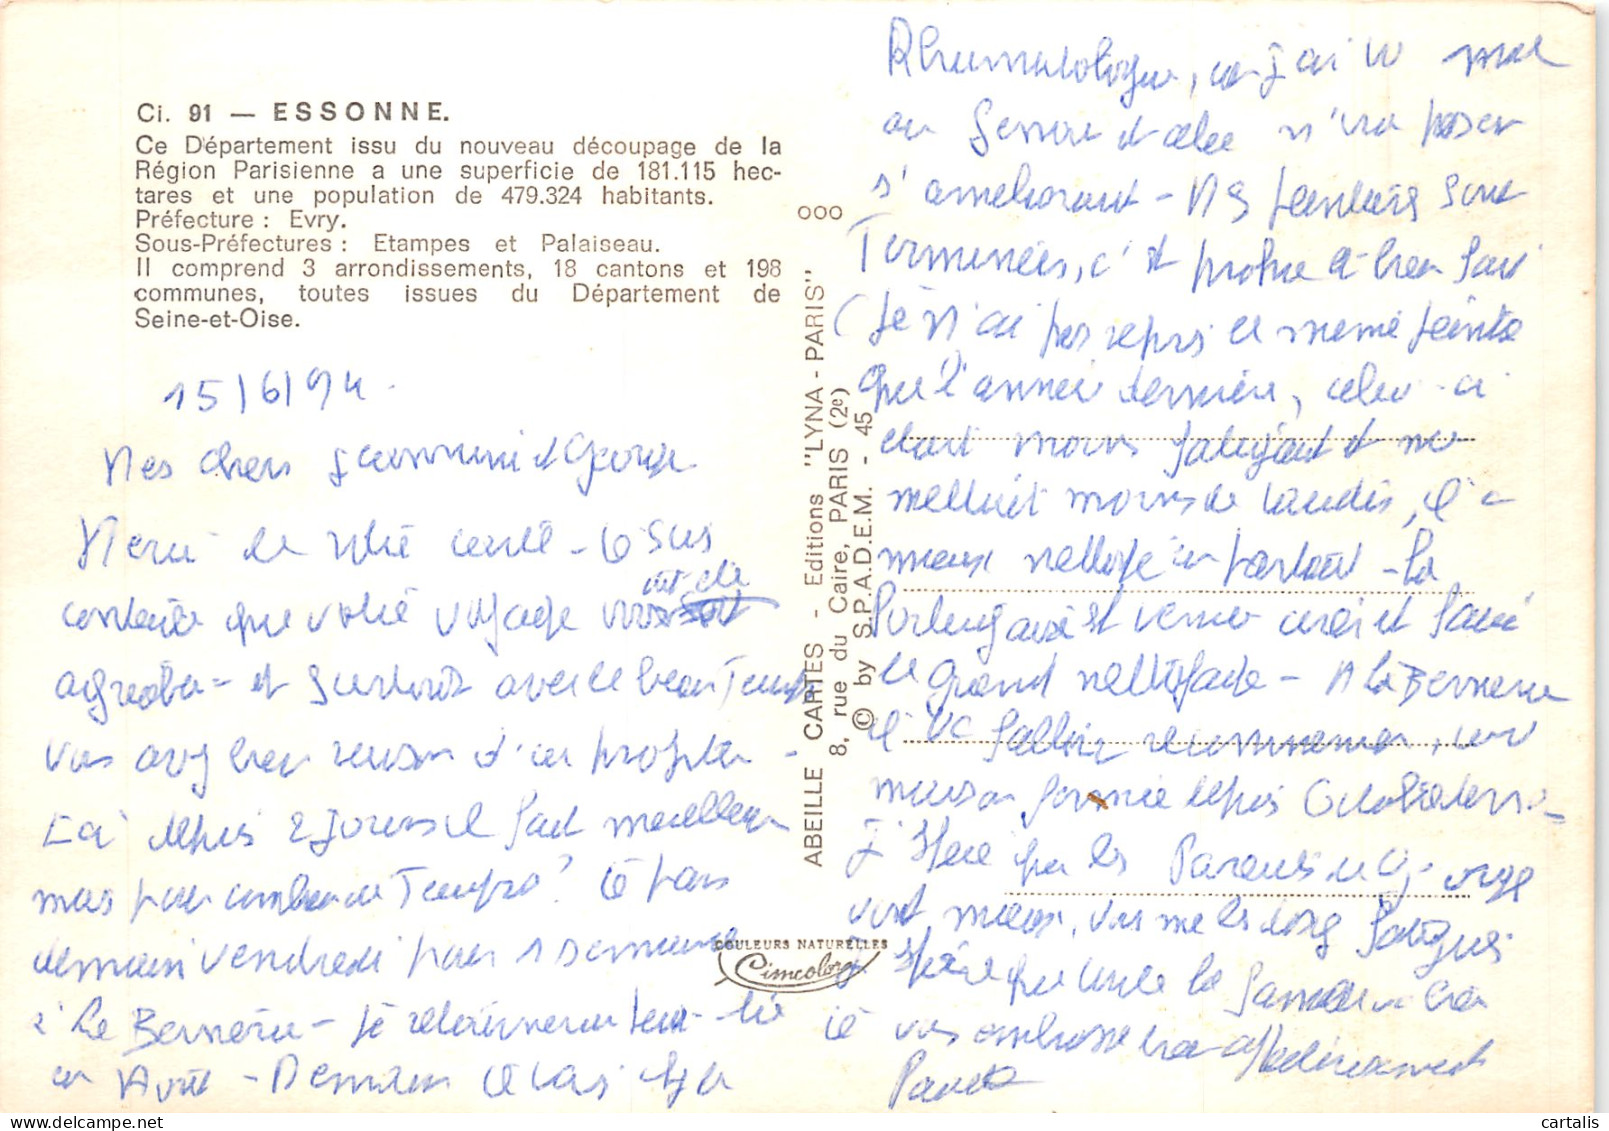 Ci. 91 — ESSONNE.
Ce Département issu du nouveau découpage de la
Région Parisienne a une superficie de 181.115 hec-
tares et une population de 479.324 habitants.
Préfecture : Evry.
Sous-Préfectures : Etampes et Palaiseau.
Il comprend 3 arrondissements, 18 cantons et 198
communes, toutes issues du Département de
Seine-et-Oise.
15/6/94.
Mes chers et George
Merci de votre carte - Je suis
contente que votre voyage ait été
agréable - et surtout avec le beau Temps
vous avez bien raison d'en profiter -
Ici depuis 2 jours il fait meilleur
mais pour combien de Temps? Je pars
demain vendredi pour 1 semaine
à La Bernerie - je retournerai
en Août - Demain
ABEILLE CARTES - Editions "LYNA - PARIS"
8, rue du Caire, PARIS (2e)
© by S.P.A.D.E.M. - 45
OOO
COULEURS NATURELLES
Cimcolora
Rhumatologue, car j'ai eu mal
au genou et cela n'va pas en
s'améliorant - Mes peintures sont
Terminées, c'est propre et bien fait
(Je n'ai pas repris le même peintre
que l'année dernière, celui-ci
était moins fatigant et me
mettait moins de taudis, il a
mieux nettoyé partout - La
Portugaise est venue et fait
le grand nettoyage - A La Bernerie
il va falloir recommencer,
maison fermée depuis Octobre
J'espère que les
vont mieux,
J'espère que toute la famille va bien
Je vous embrasse bien affectueusement